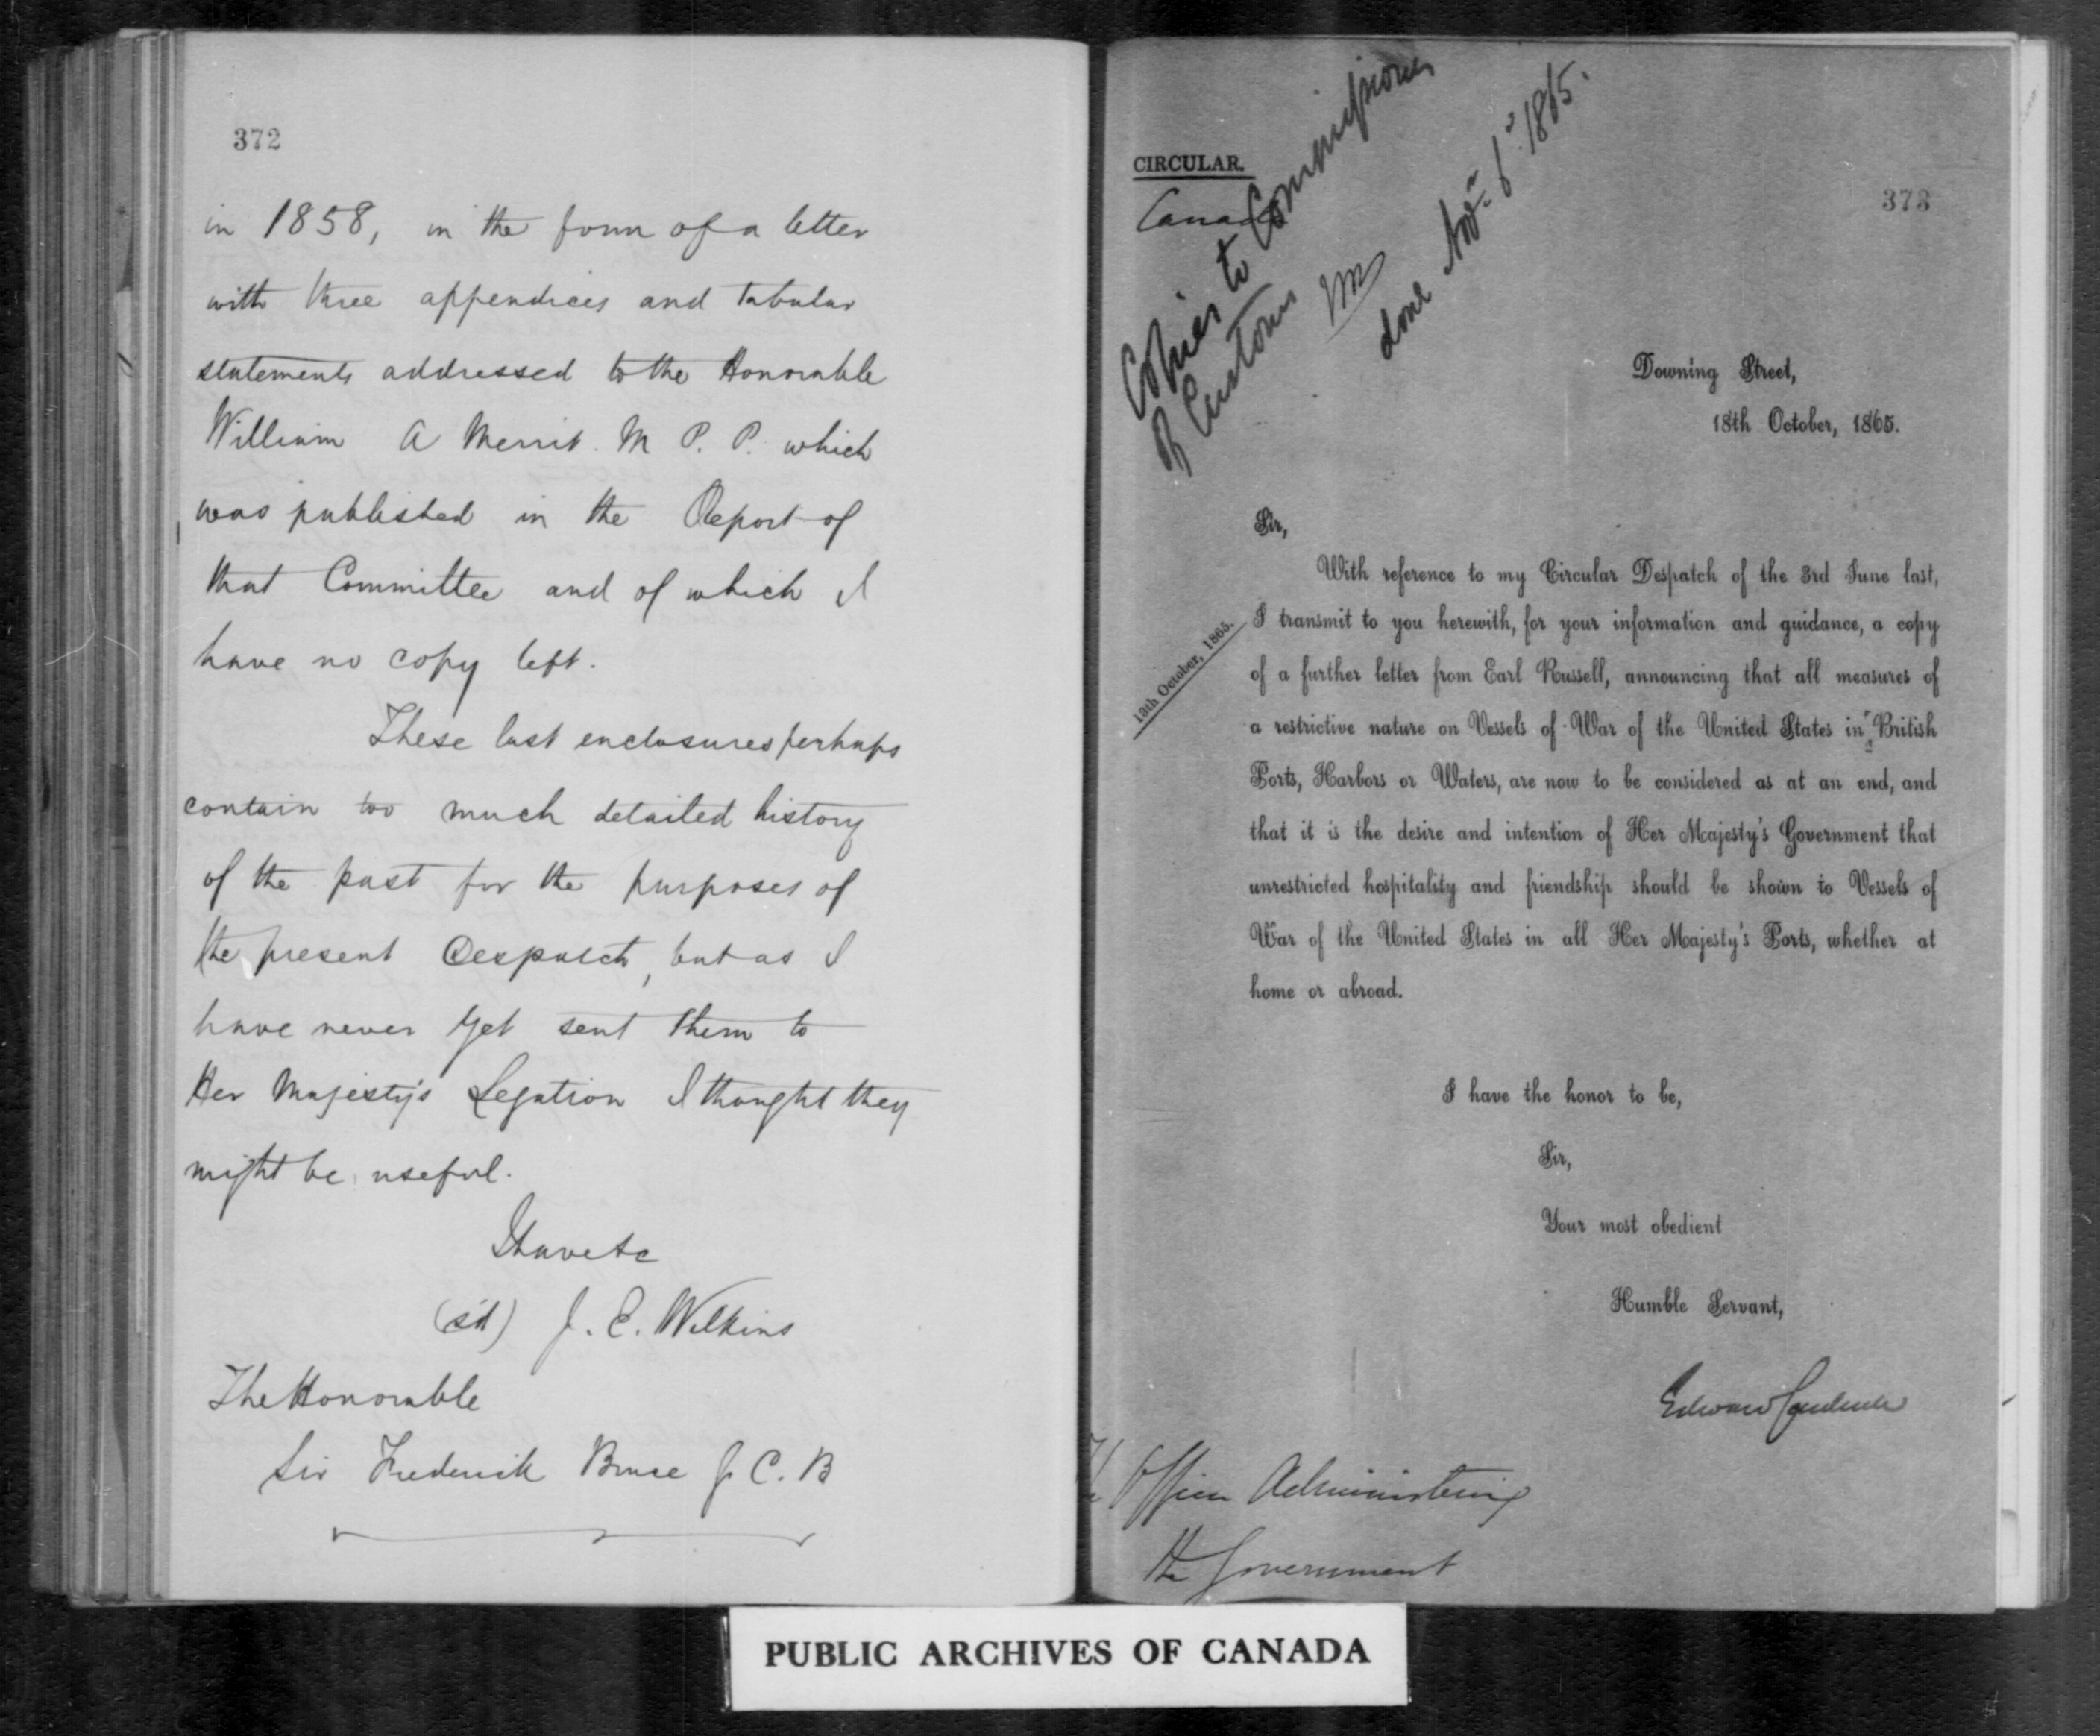 372
in 1858, in the form of a letter
with three appendices and tabular
statements addressed to the Honorable
William A Merrit. M P. P. which
was published in the Report of
that Committee and of which I
have no copy left.
These last enclosures perhaps
contain too much detailed history
of the past for the purposes of
the present Despatch, but as I
have never yet sent them to
Her Majesty's Legation I thought they
might be useful.
I have &c
(sd) J. E. Wilkins
The Honorable
Sir Frederick Bruce G. C. B
CIRCULAR.
Canada
Copies to Commissioner
of Customs
done Nov. 1865.
373
Downing Street,
18th October, 1865.
Sir,
With reference to my Circular Despatch of the 3rd June last,
13th October, 1865.
I transmit to you herewith, for your information and guidance, a copy
of a further letter from Earl Russell, announcing that all measures of
a restrictive nature on Vessels of War of the United States in British
Ports, Harbors or Waters, are now to be considered as at an end, and
that it is the desire and intention of Her Majesty's Government that
unrestricted hospitality and friendship should be shown to Vessels of
War of the United States in all Her Majesty's Ports, whether at
home or abroad.
I have the honor to be,
Sir,
Your most obedient
Humble Servant,
Edward Cardwell
Officer Administering
the Government
PUBLIC ARCHIVES OF CANADA